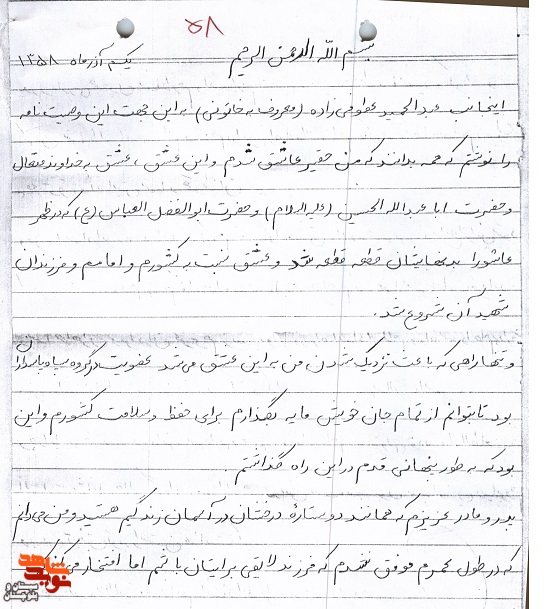 ۵۸
بسم الله الرحمن الرحیم
یکم آذرماه ۱۳۵۸
اینجانب عبدالحمید عطوفی زاده (معروف به خاتونی) به این جهت این وصیت نامه
را نوشتم که همه بدانند که من حقیر عاشق شدم و این عشق ، عشق به خداوند متعال
و حضرت ابا عبدالله الحسین (علیه السلام) و حضرت ابوالفضل العباس (ع) که در ظهر
عاشورا بدنهایشان قطعه قطعه شد و عشق نسبت به کشورم و امامم و فرزندان
شهید آن شروع شد.
و تنها راهی که باعث نزدیک شدن من به این عشق می شد عضویت در گروه سپاه پاسداران
بود تا بتوانم از تمام جان خویش مایه بگذارم برای حفظ و سلامت کشورم و این
بود که به طور پنهانی قدم در این راه گذاشتم.
پدر و مادر عزیزم که همانند دو ستاره درخشان در آسمان زندگیم هستید و من می دانم
که در طول عمرم موفق نشدم که فرزند لایقی برایتان باشم اما افتخار می کنم
نوید شاهد